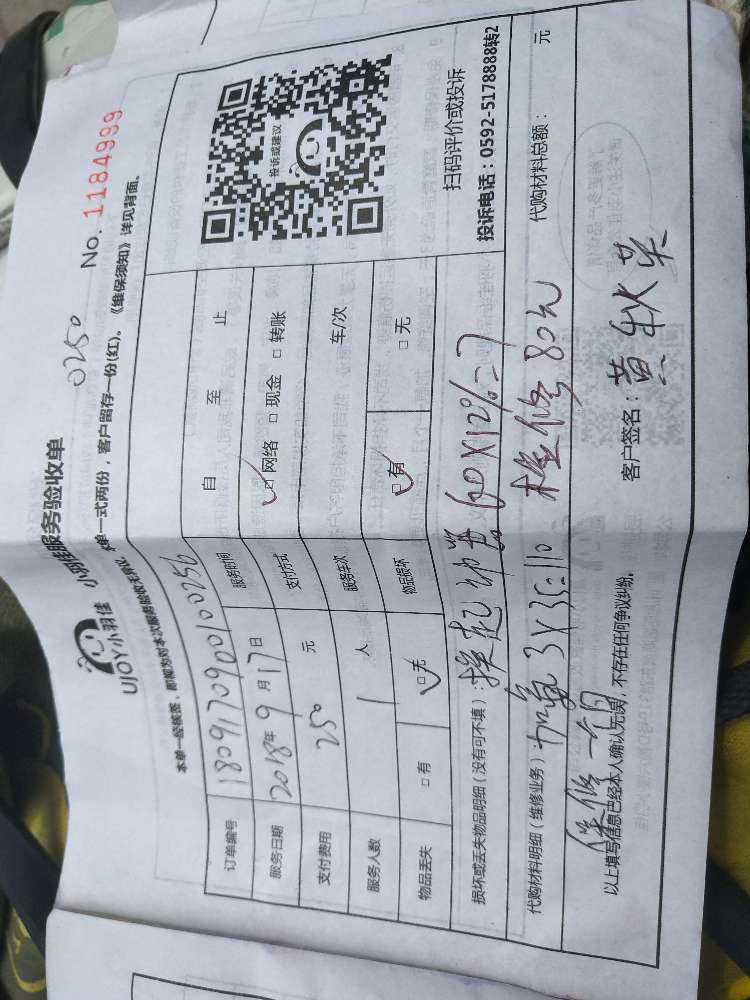 UJOY小羽佳
小羽佳服务验收单
0250
本单一经核签，即视为对本次服务验收无异议，本单一式两份，客户留存一份(红)。《维保须知》详见背面。
No. 1184999
订单编号 1809170900100256
服务时间 自 至 止
服务日期 2018年9月17日
支付方式 网络 现金 转账
支付费用 250 元
服务车次 车/次
服务人数 1 人
物品丢失 有 无
物品损坏 有 无
投诉或建议
扫码评价或投诉
投诉电话：0592-5178888转2
损坏或丢失物品明细（没有可不填）：换起动器 60X12%=7
代购材料明细（维修业务）：加氟 3X35=110 检修80元
代购材料总额： 元
保修一个月
以上填写信息已经本人确认无误，不存在任何争议纠纷。
客户签名：黄秋英